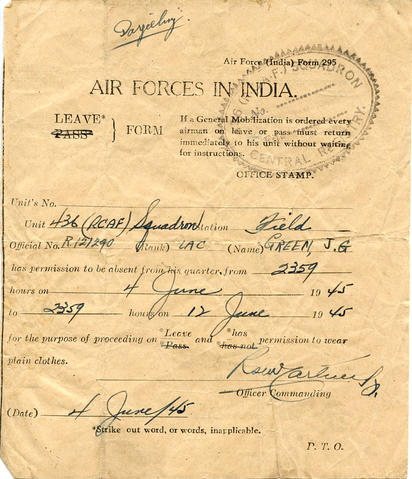 Darjeeling.
Air Force (India) Form 295
AIR FORCES IN INDIA.
SQUADRON
CENTRAL REGISTRY.
No.
LEAVE*
PASS* } FORM
If a General Mobilization is ordered every
airman on leave or pass must return
immediately to his unit without waiting
for instructions.
OFFICE STAMP.
Unit's No.
Unit 436 (RCAF) Squadron Station Field
Official No. R121290 (Rank) LAC (Name) GREEN, J.G
has permission to be absent from his quarter, from 2359
hours on 4 June 1945
to 2359 hours on 12 June 1945
for the purpose of proceeding on *Leave *Pass and *has *has not permission to wear
plain clothes.
Officer Commanding
(Date) 4 June/45
*Strike out word, or words, inapplicable.
P. T. O.